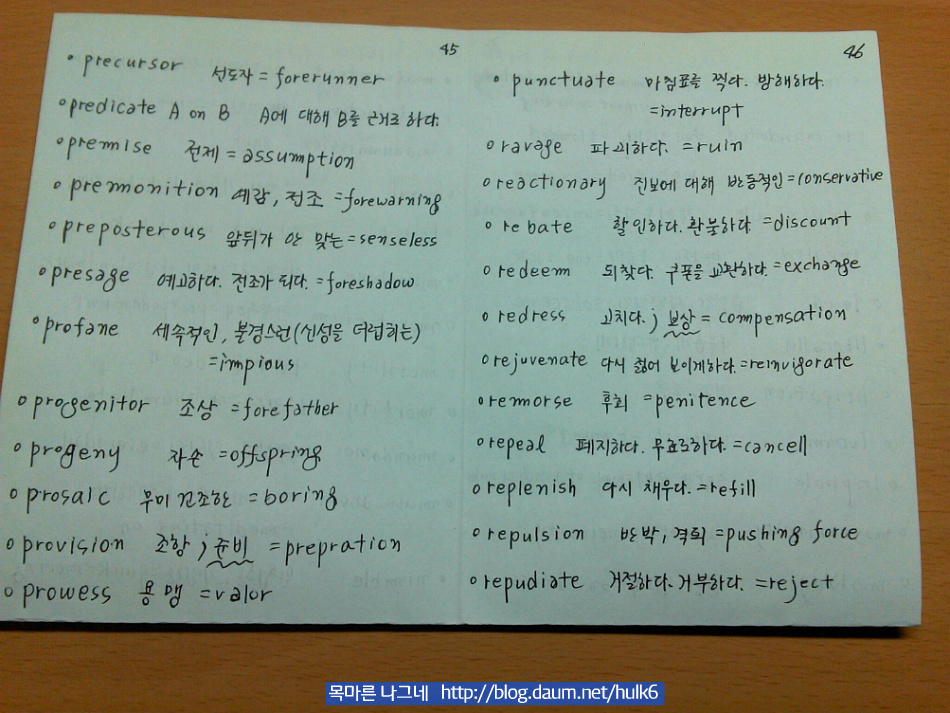 45
• precursor 선도자 = forerunner
• predicate A on B A에 대해 B를 근거로 하다.
• premise 전제 = assumption
• premonition 예감, 전조 = forewarning
• preposterous 앞뒤가 안 맞는 = senseless
• presage 예고하다. 전조가 되다. = foreshadow
• profane 세속적인, 불경스런(신성을 더럽히는)
= impious
• progenitor 조상 = forefather
• progeny 자손 = offspring
• prosaic 무미건조한 = boring
• provision 조항 ; 준비 = prepration
• prowess 용맹 = valor
46
• punctuate 마침표를 찍다. 방해하다.
= interrupt
• ravage 파괴하다. = ruin
• reactionary 진보에 대해 반동적인 = conservative
• rebate 할인하다. 환불하다 = discount
• redeem 되찾다. 쿠폰을 교환하다. = exchange
• redress 고치다. ; 보상 = compensation
• rejuvenate 다시 젊어 보이게하다. = reinvigorate
• remorse 후회 = penitence
• repeal 폐지하다. 무효로하다. = cancell
• replenish 다시 채우다. = refill
• repulsion 반박, 격퇴 = pushing force
• repudiate 거절하다. 거부하다. = reject
목마른 나그네 http://blog.daum.net/hulk6